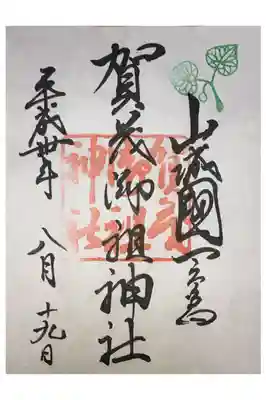 山城國一之宮
賀茂御祖神社
平成卅年 八月十九日
賀茂
御祖
神社